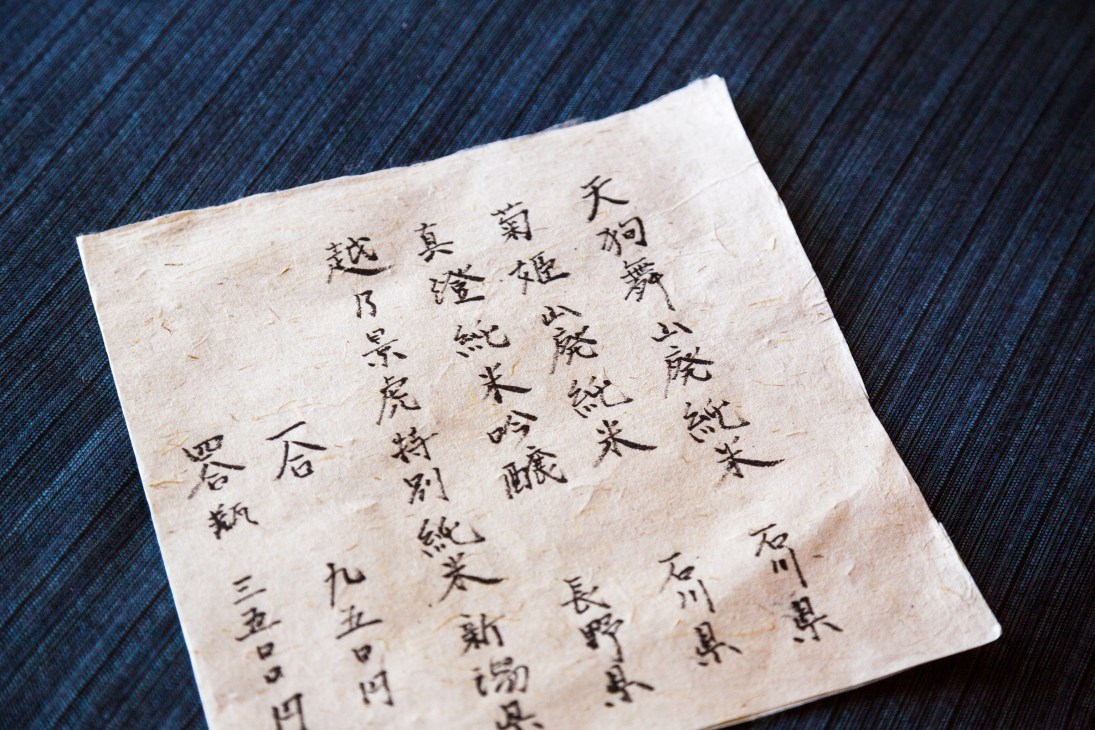 天狗舞 山廃 純米 石川県
菊姫 山廃 純米 石川県
真澄 純米吟醸 長野県
越乃景虎 特別純米 新潟県
一合 九五〇円
四合瓶 三五〇〇円